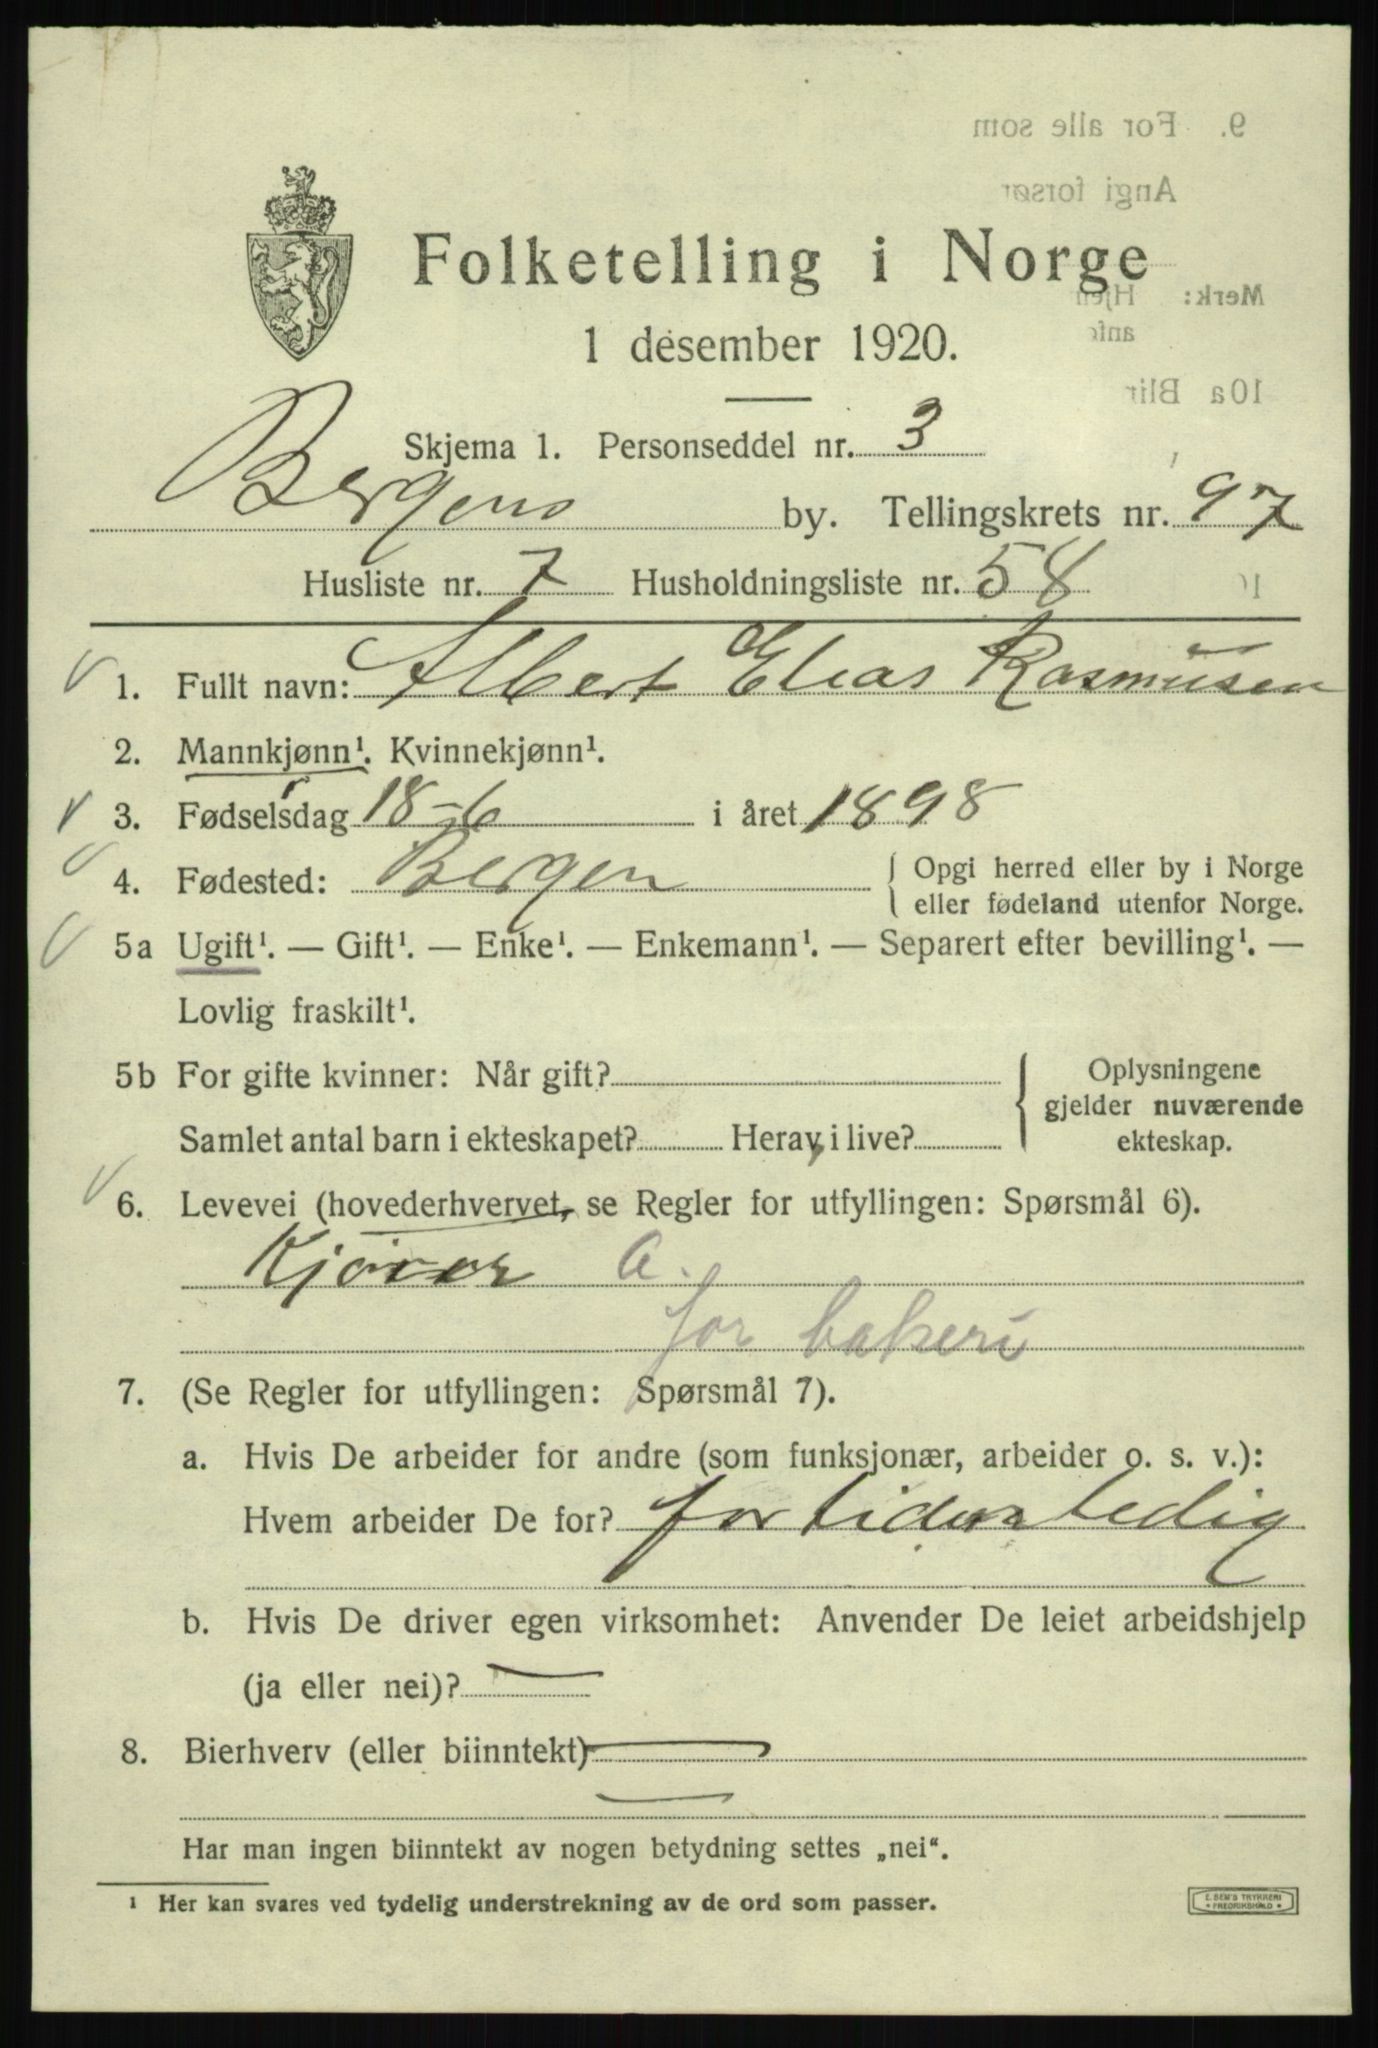 9. For alle som
Angi forsør
Folketelling i Norge
Merk: Hjem
anfø
1 desember 1920.
10a Blir
Skjema 1. Personseddel nr. 3
Bergens by. Tellingskrets nr. 97
Husliste nr. 7 Husholdningsliste nr. 58
1. Fullt navn: Albert Elias Rasmusen
2. Mannkjønn¹. Kvinnekjønn¹.
3. Fødselsdag 18-6 i året 1898
4. Fødested: Bergen { Opgi herred eller by i Norge
eller fødeland utenfor Norge.
5a Ugift¹. — Gift¹. — Enke¹. — Enkemann¹. — Separert efter bevilling¹. —
Lovlig fraskilt¹.
5b For gifte kvinner: Når gift? Oplysningene
gjelder nuværende
Samlet antal barn i ekteskapet? Herav i live? ekteskap.
6. Levevei (hovederhvervet, se Regler for utfyllingen: Spørsmål 6).
Kjører a.
for bakeri
7. (Se Regler for utfyllingen: Spørsmål 7).
a. Hvis De arbeider for andre (som funksjonær, arbeider o. s. v.):
Hvem arbeider De for? for tiden ledig
b. Hvis De driver egen virksomhet: Anvender De leiet arbeidshjelp
(ja eller nei)? —
8. Bierhverv (eller biinntekt) —
—
Har man ingen biinntekt av nogen betydning settes „nei“.
¹ Her kan svares ved tydelig understrekning av de ord som passer.
E. SEM'S TRYKKERI
FREDRIKSHALD